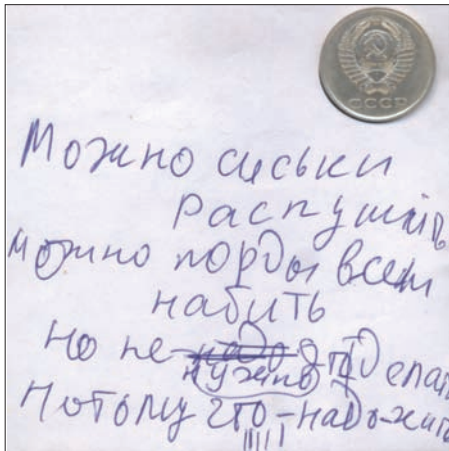 СССР
Можно сиськи
распушить
можно морды всем
набить
но не надо это делать
нужно
Потому что-надо-жить